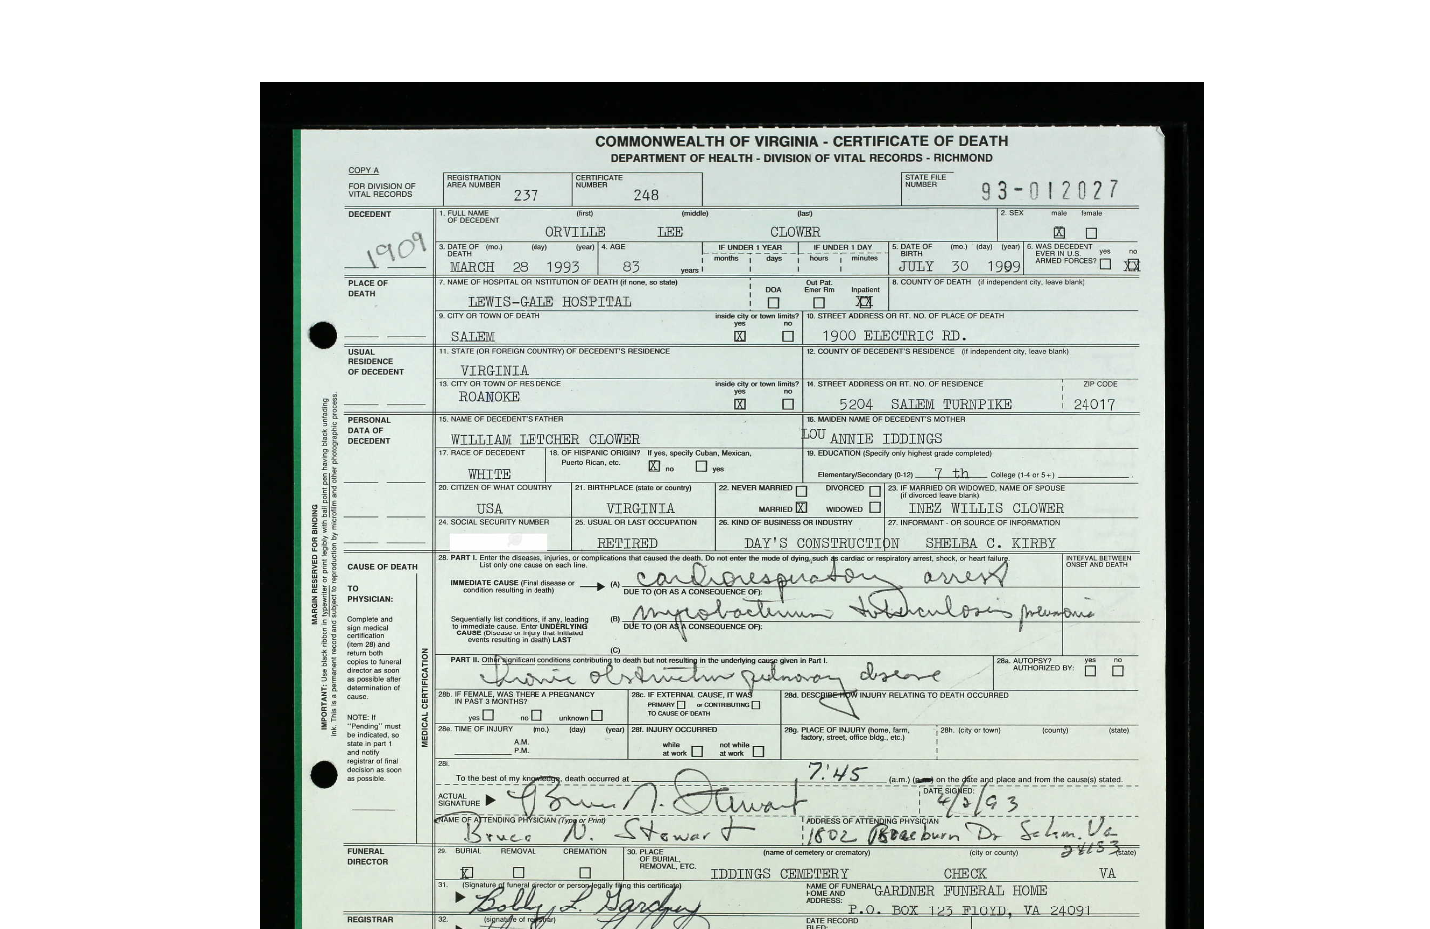 COMMONWEALTH OF VIRGINIA - CERTIFICATE OF DEATH
DEPARTMENT OF HEALTH - DIVISION OF VITAL RECORDS - RICHMOND
COPY A
FOR DIVISION OF VITAL RECORDS
REGISTRATION AREA NUMBER 237 CERTIFICATE NUMBER 248 STATE FILE NUMBER 93-012027
DECEDENT 1. FULL NAME OF DECEDENT (first) (middle) (last) 2. SEX male female
ORVILLE LEE CLOWER X
1909
3. DATE OF DEATH (mo.) (day) (year) 4. AGE IF UNDER 1 YEAR IF UNDER 1 DAY 5. DATE OF BIRTH (mo.) (day) (year) 6. WAS DECEDENT EVER IN U.S. ARMED FORCES? yes no
months days hours minutes
MARCH 28 1993 83 years JULY 30 1909 XX
PLACE OF DEATH 7. NAME OF HOSPITAL OR INSTITUTION OF DEATH (if none, so state) DOA Out Pat. Emer Rm Inpatient 8. COUNTY OF DEATH (if independent city, leave blank)
LEWIS-GALE HOSPITAL XX
9. CITY OR TOWN OF DEATH inside city or town limits? yes no 10. STREET ADDRESS OR RT. NO. OF PLACE OF DEATH
SALEM X 1900 ELECTRIC RD.
USUAL RESIDENCE OF DECEDENT 11. STATE (OR FOREIGN COUNTRY) OF DECEDENT'S RESIDENCE 12. COUNTY OF DECEDENT'S RESIDENCE (if independent city, leave blank)
VIRGINIA
13. CITY OR TOWN OF RESIDENCE inside city or town limits? yes no 14. STREET ADDRESS OR RT. NO. OF RESIDENCE ZIP CODE
ROANOKE X 5204 SALEM TURNPIKE 24017
PERSONAL DATA OF DECEDENT 15. NAME OF DECEDENT'S FATHER 16. MAIDEN NAME OF DECEDENT'S MOTHER
WILLIAM LETCHER CLOWER LOU ANNIE IDDINGS
17. RACE OF DECEDENT 18. OF HISPANIC ORIGIN? If yes, specify Cuban, Mexican, Puerto Rican, etc. X no yes 19. EDUCATION (Specify only highest grade completed)
WHITE Elementary/Secondary (0-12) 7 th College (1-4 or 5+)
20. CITIZEN OF WHAT COUNTRY 21. BIRTHPLACE (state or country) 22. NEVER MARRIED DIVORCED 23. IF MARRIED OR WIDOWED, NAME OF SPOUSE (if divorced leave blank)
USA VIRGINIA MARRIED X WIDOWED INEZ WILLIS CLOWER
24. SOCIAL SECURITY NUMBER 25. USUAL OR LAST OCCUPATION 26. KIND OF BUSINESS OR INDUSTRY 27. INFORMANT - OR SOURCE OF INFORMATION
RETIRED DAY'S CONSTRUCTION SHELBA C. KIRBY
CAUSE OF DEATH 28. PART I. Enter the diseases, injuries, or complications that caused the death. Do not enter the mode of dying, such as cardiac or respiratory arrest, shock, or heart failure. List only one cause on each line. INTERVAL BETWEEN ONSET AND DEATH
IMMEDIATE CAUSE (Final disease or condition resulting in death) (A) cardiorespiratory arrest
DUE TO (OR AS A CONSEQUENCE OF):
Sequentially list conditions, if any, leading to immediate cause. Enter UNDERLYING CAUSE (Disease or injury that initiated events resulting in death) LAST (B) mycobacterium tuberculosis pneumonia
DUE TO (OR AS A CONSEQUENCE OF):
(C)
TO PHYSICIAN:
Complete and sign medical certification (item 28) and return both copies to funeral director as soon as possible after determination of cause.
NOTE: If "Pending" must be indicated, so state in part 1 and notify registrar of final decision as soon as possible.
MARGIN RESERVED FOR BINDING
IMPORTANT: Use black ribbon in typewriter or print legibly with ball point pen having black unfading ink. This is a permanent record and subject to reproduction by microfilm and other photographic process.
MEDICAL CERTIFICATION
PART II. Other significant conditions contributing to death but not resulting in the underlying cause given in Part I. 28a. AUTOPSY? AUTHORIZED BY: yes no
chronic obstructive pulmonary disease
28b. IF FEMALE, WAS THERE A PREGNANCY IN PAST 3 MONTHS? yes no unknown 28c. IF EXTERNAL CAUSE, IT WAS PRIMARY or CONTRIBUTING TO CAUSE OF DEATH 28d. DESCRIBE HOW INJURY RELATING TO DEATH OCCURRED
28e. TIME OF INJURY (mo.) (day) (year) A.M. P.M. 28f. INJURY OCCURRED while at work not while at work 28g. PLACE OF INJURY (home, farm, factory, street, office bldg., etc.) 28h. (city or town) (county) (state)
28i.
To the best of my knowledge, death occurred at 7:45 (a.m.) on the date and place and from the cause(s) stated.
ACTUAL SIGNATURE Bruce N. Stewart DATE SIGNED: 4/2/93
NAME OF ATTENDING PHYSICIAN (Type or Print) ADDRESS OF ATTENDING PHYSICIAN
Bruce N. Stewart 1802 Braeburn Dr Salem. Va 24153 (state)
FUNERAL DIRECTOR 29. BURIAL REMOVAL CREMATION 30. PLACE OF BURIAL, REMOVAL, ETC. (name of cemetery or crematory) (city or county)
X IDDINGS CEMETERY CHECK VA
31. (Signature of funeral director or person legally filing this certificate) NAME OF FUNERAL HOME AND ADDRESS: GARDNER FUNERAL HOME
Bobby L. Gardner P.O. BOX 123 FLOYD, VA 24091
REGISTRAR 32. (signature of registrar) DATE RECORD FILED: